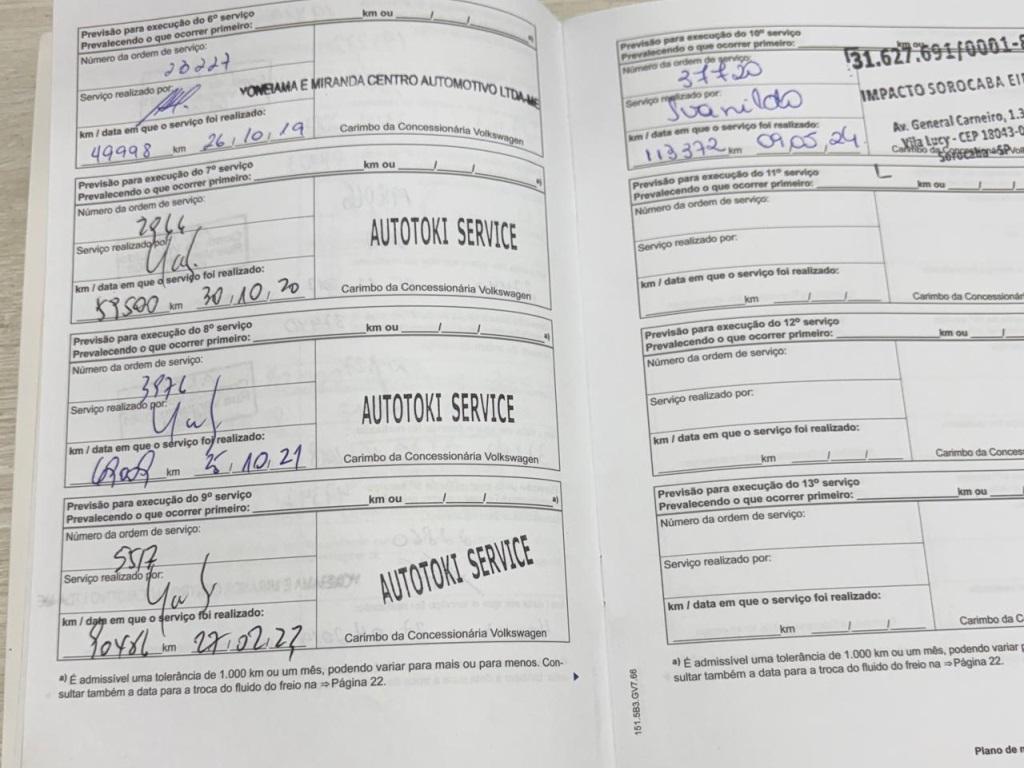 Previsão para execução do 6º serviço
Prevalecendo o que ocorrer primeiro: km ou / / a)
Número da ordem de serviço:
20227
Serviço realizado por:
YONEIAMA E MIRANDA CENTRO AUTOMOTIVO LTDA-ME
km / data em que o serviço foi realizado:
49998 km 26,10,19
Carimbo da Concessionária Volkswagen
Previsão para execução do 7º serviço
Prevalecendo o que ocorrer primeiro: km ou / / a)
Número da ordem de serviço:
2966
Serviço realizado por:
AUTOTOKI SERVICE
km / data em que o serviço foi realizado:
59500 km 30,10,20
Carimbo da Concessionária Volkswagen
Previsão para execução do 8º serviço
Prevalecendo o que ocorrer primeiro: km ou / / a)
Número da ordem de serviço:
3976
Serviço realizado por:
AUTOTOKI SERVICE
km / data em que o serviço foi realizado:
km 25,10,21
Carimbo da Concessionária Volkswagen
Previsão para execução do 9º serviço
Prevalecendo o que ocorrer primeiro: km ou / / a)
Número da ordem de serviço:
5517
Serviço realizado por:
AUTOTOKI SERVICE
km / data em que o serviço foi realizado:
90486 km 27,02,23
Carimbo da Concessionária Volkswagen
a) É admissível uma tolerância de 1.000 km ou um mês, podendo variar para mais ou para menos. Con-
sultar também a data para a troca do fluido do freio na ⇒Página 22.
Previsão para execução do 10º serviço
Prevalecendo o que ocorrer primeiro: km ou
31.627.691/0001-
Número da ordem de serviço:
37720
IMPACTO SOROCABA EI
Serviço realizado por:
Ivanildo
Av. General Carneiro, 1.3
Vila Lucy - CEP 18043-0
Sorocaba - SP
km / data em que o serviço foi realizado:
113372 km 09,05,24
Previsão para execução do 11º serviço
Prevalecendo o que ocorrer primeiro: km ou / /
Número da ordem de serviço:
Serviço realizado por:
km / data em que o serviço foi realizado:
km / /
Carimbo da Concessionár
Previsão para execução do 12º serviço
Prevalecendo o que ocorrer primeiro: km ou /
Número da ordem de serviço:
Serviço realizado por:
km / data em que o serviço foi realizado:
km / /
Carimbo da Concess
Previsão para execução do 13º serviço
Prevalecendo o que ocorrer primeiro: km ou /
Número da ordem de serviço:
Serviço realizado por:
km / data em que o serviço foi realizado:
km / /
Carimbo da C
a) É admissível uma tolerância de 1.000 km ou um mês, podendo variar p
sultar também a data para a troca do fluido do freio na ⇒Página 22.
151.5B3.GV7.66
Plano de m